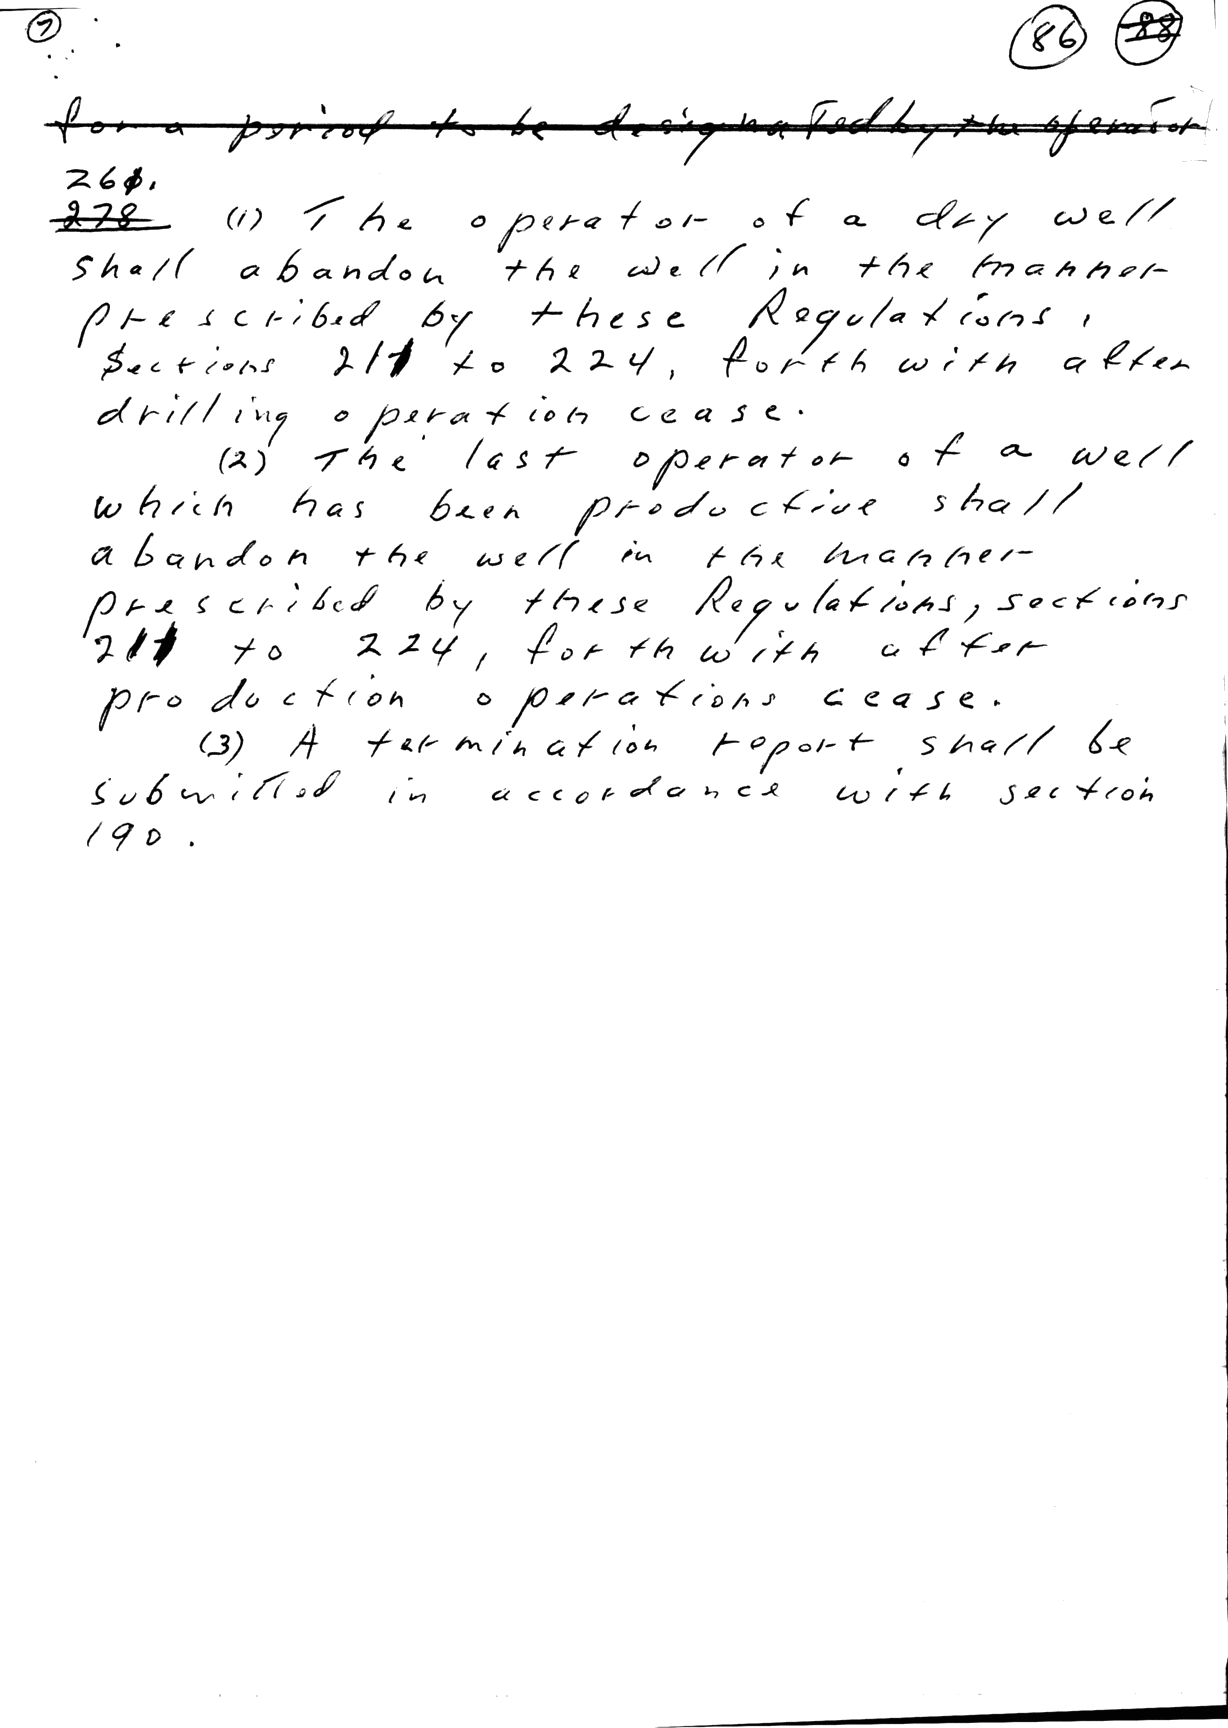 7
86 88
for a period to be designated by the operator
260.
278 (1) The operator of a dry well
shall abandon the well in the manner
prescribed by these Regulations,
Sections 211 to 224, forthwith after
drilling operation cease.
(2) The last operator of a well
which has been productive shall
abandon the well in the manner
prescribed by these Regulations, sections
211 to 224, forthwith after
production operations cease.
(3) A termination report shall be
submitted in accordance with section
190.